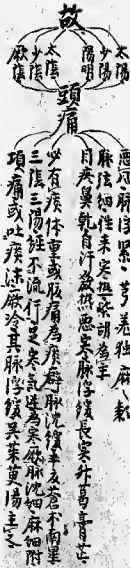 故
頭痛
太陽
陽明
少陽
太陰
少陰
厥陰
惡風脉浮緊川芎羌獨麻黄
脉弦細往來寒热柴胡為主
目疾鼻乾自汗發热惡寒脉浮緩長實升葛膏芷
必有痰体重或腹痛為痰癖脉沉緩半夏蒼术南星
三陰三陽經不流行足寒氣逆為寒厥脉沉細麻細附
項痛或吐痰沫厥冷其脉浮緩吳茱萸湯主之